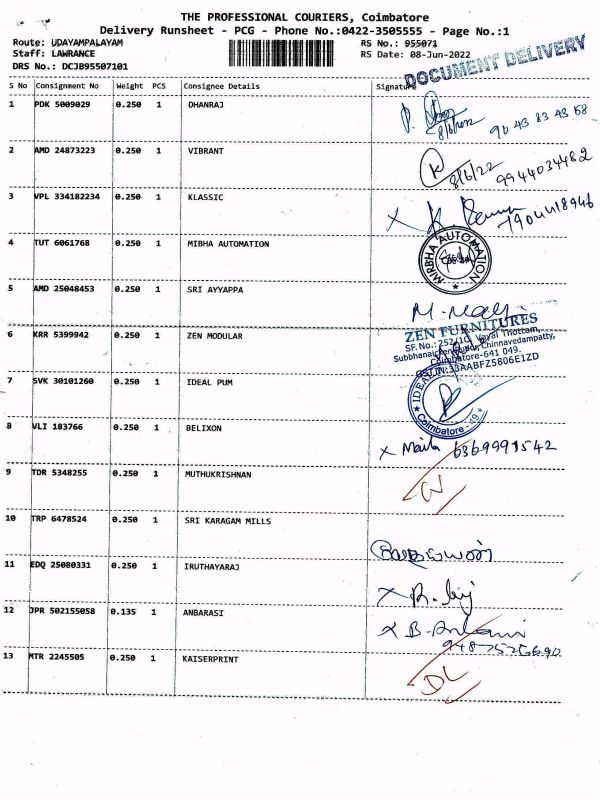 THE PROFESSIONAL COURIERS, Coimbatore
Delivery Runsheet - PCG - Phone No.:0422-3505555 - Page No.:1
Route: UDAYAMPALAYAM RS No.: 955071
Staff: LAWRANCE RS Date: 08-Jun-2022
DRS No.: DCJB95507101
DOCUMENT DELIVERY
S No Consignment No Weight PCS Consignee Details Signature
1 PDK 5009029 0.250 1 DHANRAJ
8/6/2022 90 43 83 43 68
2 AMD 24873223 0.250 1 VIBRANT
8/6/22 9944034482
3 VPL 334182234 0.250 1 KLASSIC
X K.
4 TUT 6061768 0.250 1 MIBHA AUTOMATION
MIRBHA AUTOMATION
5 AMD 25048453 0.250 1 SRI AYYAPPA
6 KRR 5399942 0.250 1 ZEN MODULAR
ZEN FURNITURES
SF. No.: 252/1C, Vayal Thottam,
Chinnavedampatty,
Coimbatore-641 049.
GSTIN:33AABFZ5806E1ZD
7 SVK 30101260 0.250 1 IDEAL PUM
IDEAL
Coimbatore - 49
8 VLI 183766 0.250 1 BELIXON
X Mala 6369991542
9 TDR 5348255 0.250 1 MUTHUKRISHNAN
10 TRP 6478524 0.250 1 SRI KARAGAM MILLS
11 EDQ 25080331 0.250 1 IRUTHAYARAJ
X R.
12 JPR 502155058 0.135 1 ANBARASI
X B.
9487526690
13 MTR 2245505 0.250 1 KAISERPRINT
DL